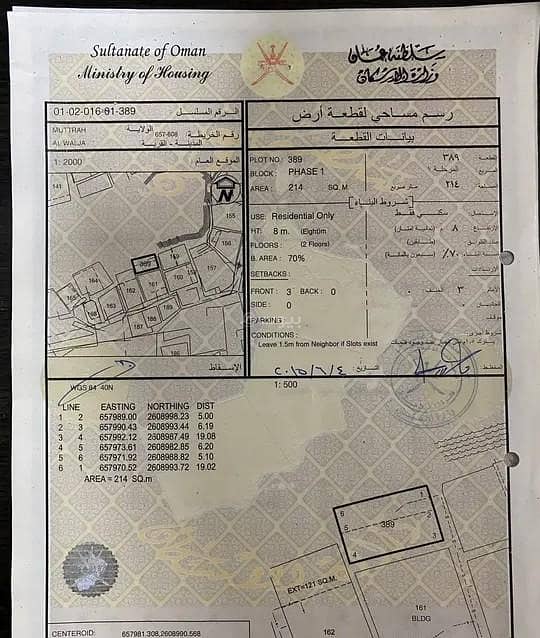 Sultanate of Oman
Ministry of Housing
سلطنة عمان
وزارة الإسكان
01-02-016-01-389 الرقم المسلسل
MUTTRAH الولاية
657-608 رقم الخريطة
AL WALJA المدينة - القرية
1: 2000 الموقع العام
141
155
156
157
159
160
389
161
162
163
164
165
166
187
188
189
N
الإسقاط
رسم مساحي لقطعة أرض
بيانات القطعة
PLOT NO.: 389 ٣٨٩ القطعة
BLOCK : PHASE 1 المرحلة ١ المربع
AREA : 214 SQ. M متر مربع ٢١٤ مساحة
شروط البناء
USE: Residential Only سكني فقط الاستعمال
HT: 8 m. (Eightüm ٨ م (ثمانية أمتار) الارتفاع
FLOORS : (2 Floors) (طابقين)
B. AREA : 70% ٧٠٪ (سبعون بالمائة)
SETBACKS : الارتدادات
FRONT : 3 BACK : 0 ٣
SIDE : 0
PARKING
CONDITIONS: شروط أخرى
Leave 1.5m from Neighbor if Slots exist
المخطط
التاريخ: ٢٠١٥/٦/٤
WGS 84 40N
1: 500
LINE EASTING NORTHING DIST
1 2 657989.00 2608998.23 5.00
2 3 657990.43 2608993.44 6.19
3 4 657992.12 2608987.49 19.08
4 5 657973.61 2608982.85 6.20
5 6 657971.92 2608988.82 5.10
6 1 657970.52 2608993.72 19.02
AREA = 214 SQ.m
6
1
5
2
389
4
3
EXT=121 SQ.M.
161
BLDG
162
CENTEROID: 657981.308,2608990.568